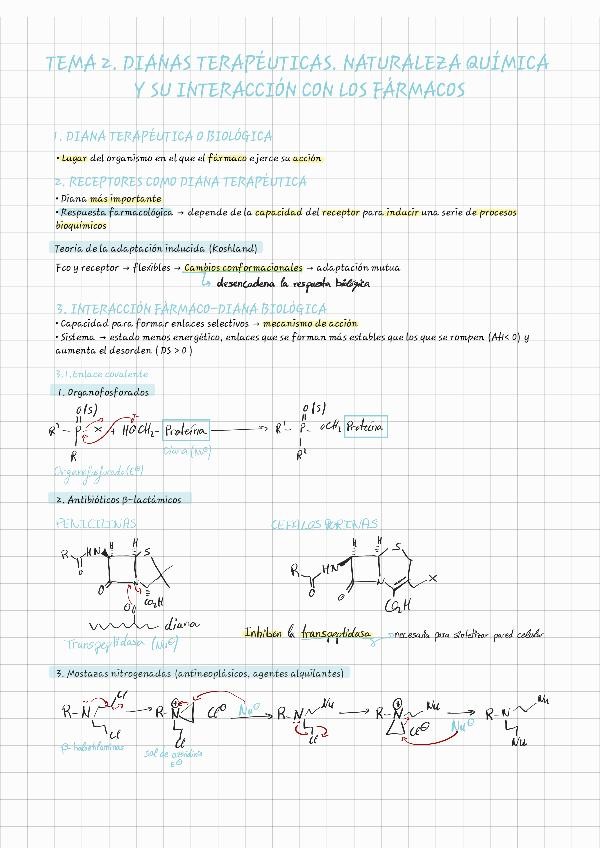 TEMA 2. DIANAS TERAPÉUTICAS. NATURALEZA QUÍMICA
Y SU INTERACCIÓN CON LOS FÁRMACOS
1. DIANA TERAPÉUTICA O BIOLÓGICA
• Lugar del organismo en el que el fármaco ejerce su acción
2. RECEPTORES COMO DIANA TERAPÉUTICA
• Diana más importante
• Respuesta farmacológica → depende de la capacidad del receptor para inducir una serie de procesos
bioquímicos
Teoría de la adaptación inducida (Koshland)
Fco y receptor → flexibles → Cambios conformacionales → adaptación mutua
↳ desencadena la respuesta biológica
3. INTERACCIÓN FÁRMACO-DIANA BIOLÓGICA
• Capacidad para formar enlaces selectivos → mecanismo de acción
• Sistema → estado menos energético, enlaces que se forman más estables que los que se rompen (ΔH< 0) y
aumenta el desorden ( DS > 0 )
3.1. Enlace covalente
1. Organofosforados
O(S) O(S)
R¹ P X + HOCH₂- Proteína → R¹ P OCH₂ Proteína
R R²
Diana (Nu⊖)
Organofosforado (E⊕)
2. Antibióticos β-lactámicos
PENICILINAS CEFALOSPORINAS
H H S H H S
R HN O N CO₂H R HN O N X
O O CO₂H
diana
Inhiben la transpeptidasa → necesaria para sintetizar pared celular
Transpeptidasa (Nu⊖)
3. Mostazas nitrogenadas (antineoplásicos, agentes alquilantes)
R-N Cl Cl → R-N⊕ Cl Cl⊖ Nu⊖ → R-N Nu Cl → R-N⊕ Nu Cl⊖ Nu⊖ → R-N Nu Nu
β-haloetilaminas
sal de aziridinio
E⊕